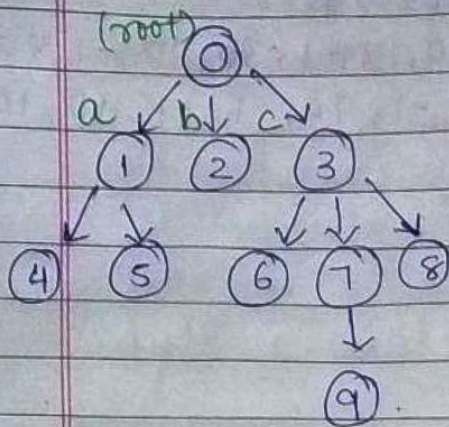 (root)
0
a b c
1 2 3
4 5 6 7 8
9